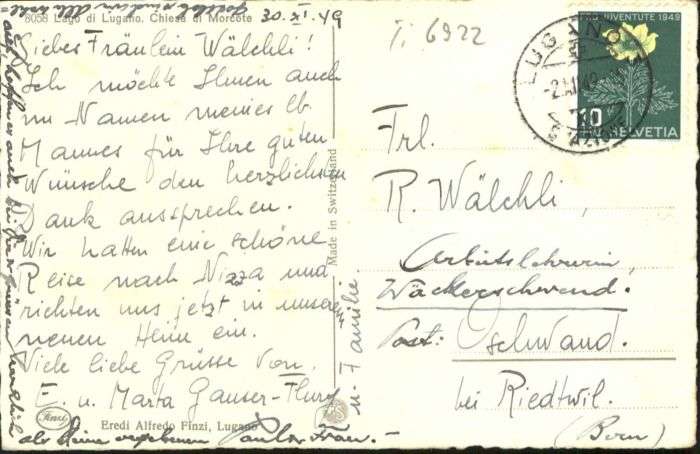 8058 Lago di Lugano. Chiesa di Morcote
30.XI.49
Liebes Fräulein Wälchli!
Ich möchte Ihnen auch
im Namen meines lb.
Mannes für Ihre guten
Wünsche den herzlichsten
Dank aussprechen.
Wir hatten eine schöne
Reise nach Nizza und
richten uns jetzt in unserem
neuen Heim ein.
Viele liebe Grüsse von
E. u. Marta Ganser-Flury
Finzi
Eredi Alfredo Finzi, Lugano
Made in Switzerland
u. Familie
Ti 6922
PRO JUVENTUTE 1949
10
HELVETIA
LUGANO
Frl.
R. Wälchli,
Arbeitslehrerin,
Wäckerschwend.
Post: Oschwand.
bei Riedtwil.
(Bern)